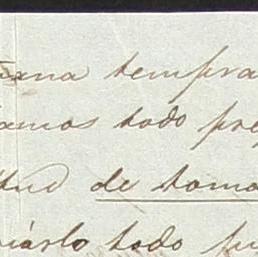 ñana tempra
amos todo pre
tud de toma
iarlo todo pu